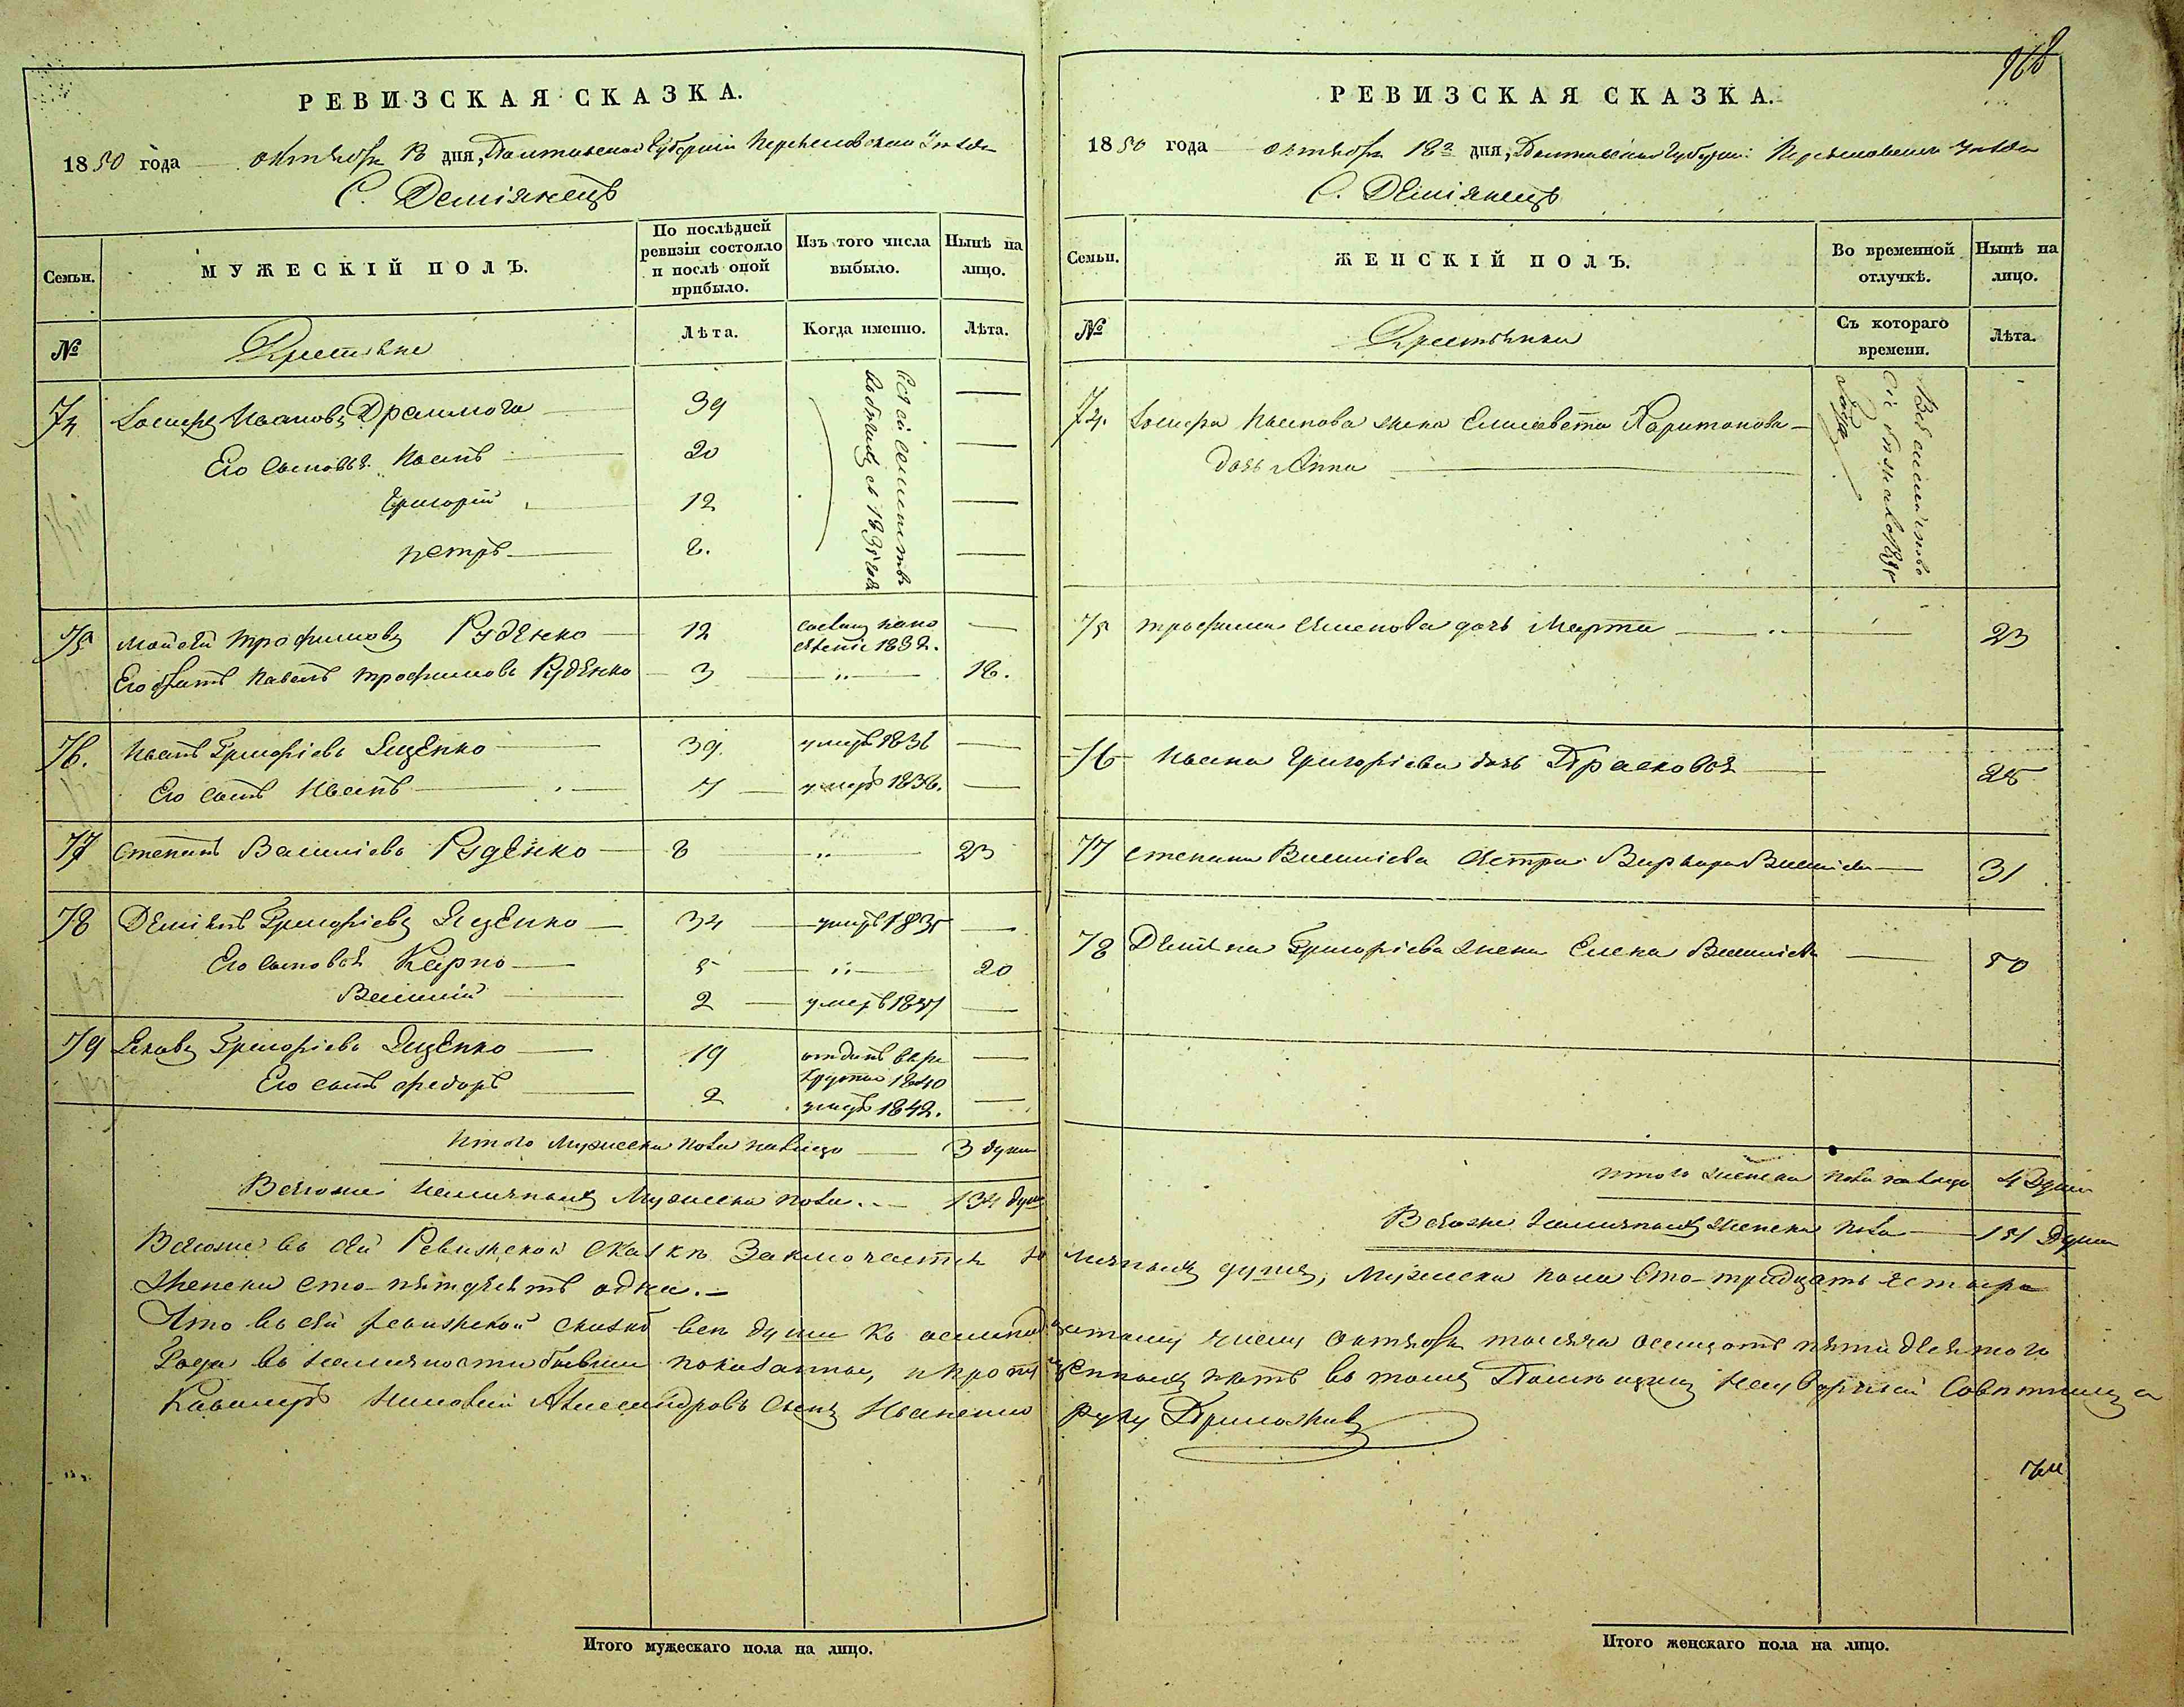 968
РЕВИЗСКАЯ СКАЗКА.
1850 года октября 18 дня, Полтавской Губернии Переяславского уезда
С. Деміянецъ
Семьи.
МУЖЕСКІЙ ПОЛЪ.
По послѣдней ревизіи состояло и послѣ оной прибыло.
Изъ того числа выбыло.
Нынѣ на лицо.
№
Крестьяне
Лѣта.
Когда именно.
Лѣта.
74 Іосифъ Ивановъ 39
Его сыновья Иванъ 20
Григорій 12
Петръ 2.
75 Мойсей Трофимовъ Руденко 12 1839.
Его братъ Павелъ Трофимовъ Руденко 3 " 18.
76. Иванъ Григорьевъ Яценко 39. умеръ 1836
Его сынъ Иванъ 7 умеръ 1836.
77 Степанъ Васильевъ Руденко 8 " 23
78 Деміянъ Григорьевъ Яценко 34 умеръ 1835
Его сыновья Карпо 5 " 20
Василій 2 умеръ 1837
79 Яковъ Григорьевъ Яценко 19 отданъ въ рекруты 1840
Его сынъ Федоръ 2 умеръ 1842.
Итого мужеска пола на лицо 3 души
Всего же наличныхъ мужеска пола 134 души
РЕВИЗСКАЯ СКАЗКА.
1850 года октября 18 дня, Полтавской Губерніи Переяславского уезда
С. Деміянецъ
Семьи.
ЖЕНСКІЙ ПОЛЪ.
Во временной отлучкѣ.
Нынѣ на лицо.
№
Крестьянки
Съ котораго времени.
Лѣта.
74. Іосифа Иванова жена Елисавета Харитонова
дочь Анна
75 Трофима Семенова дочь Марта " 23
76 Ивана Григорьева дочь Прасковья 25
77 Степана Васильева сестра Варвара Васильева 31
78 Деміяна Григорьева жена Елена Васильева 50
Итого женска пола на лицо 4 Души
Всего же наличныхъ женска пола 151 Душа
Всего же въ сей Ревизской сказкѣ заключается наличныхъ душъ, мужеска пола сто тридцать четыре
женска сто пятдесятъ одна.
Что въ сей ревизской сказкѣ все души къ осмнадцатому числу октября тысяча осемсотъ пятидесятого
Года въ наличности бывшие показаны, и пропущенныхъ нетъ въ томъ Помещикъ Надворный Советникъ и
Кавалеръ Александровъ сынъ Иваненко руку приложилъ
Итого мужескаго пола на лицо.
Итого женскаго пола на лицо.